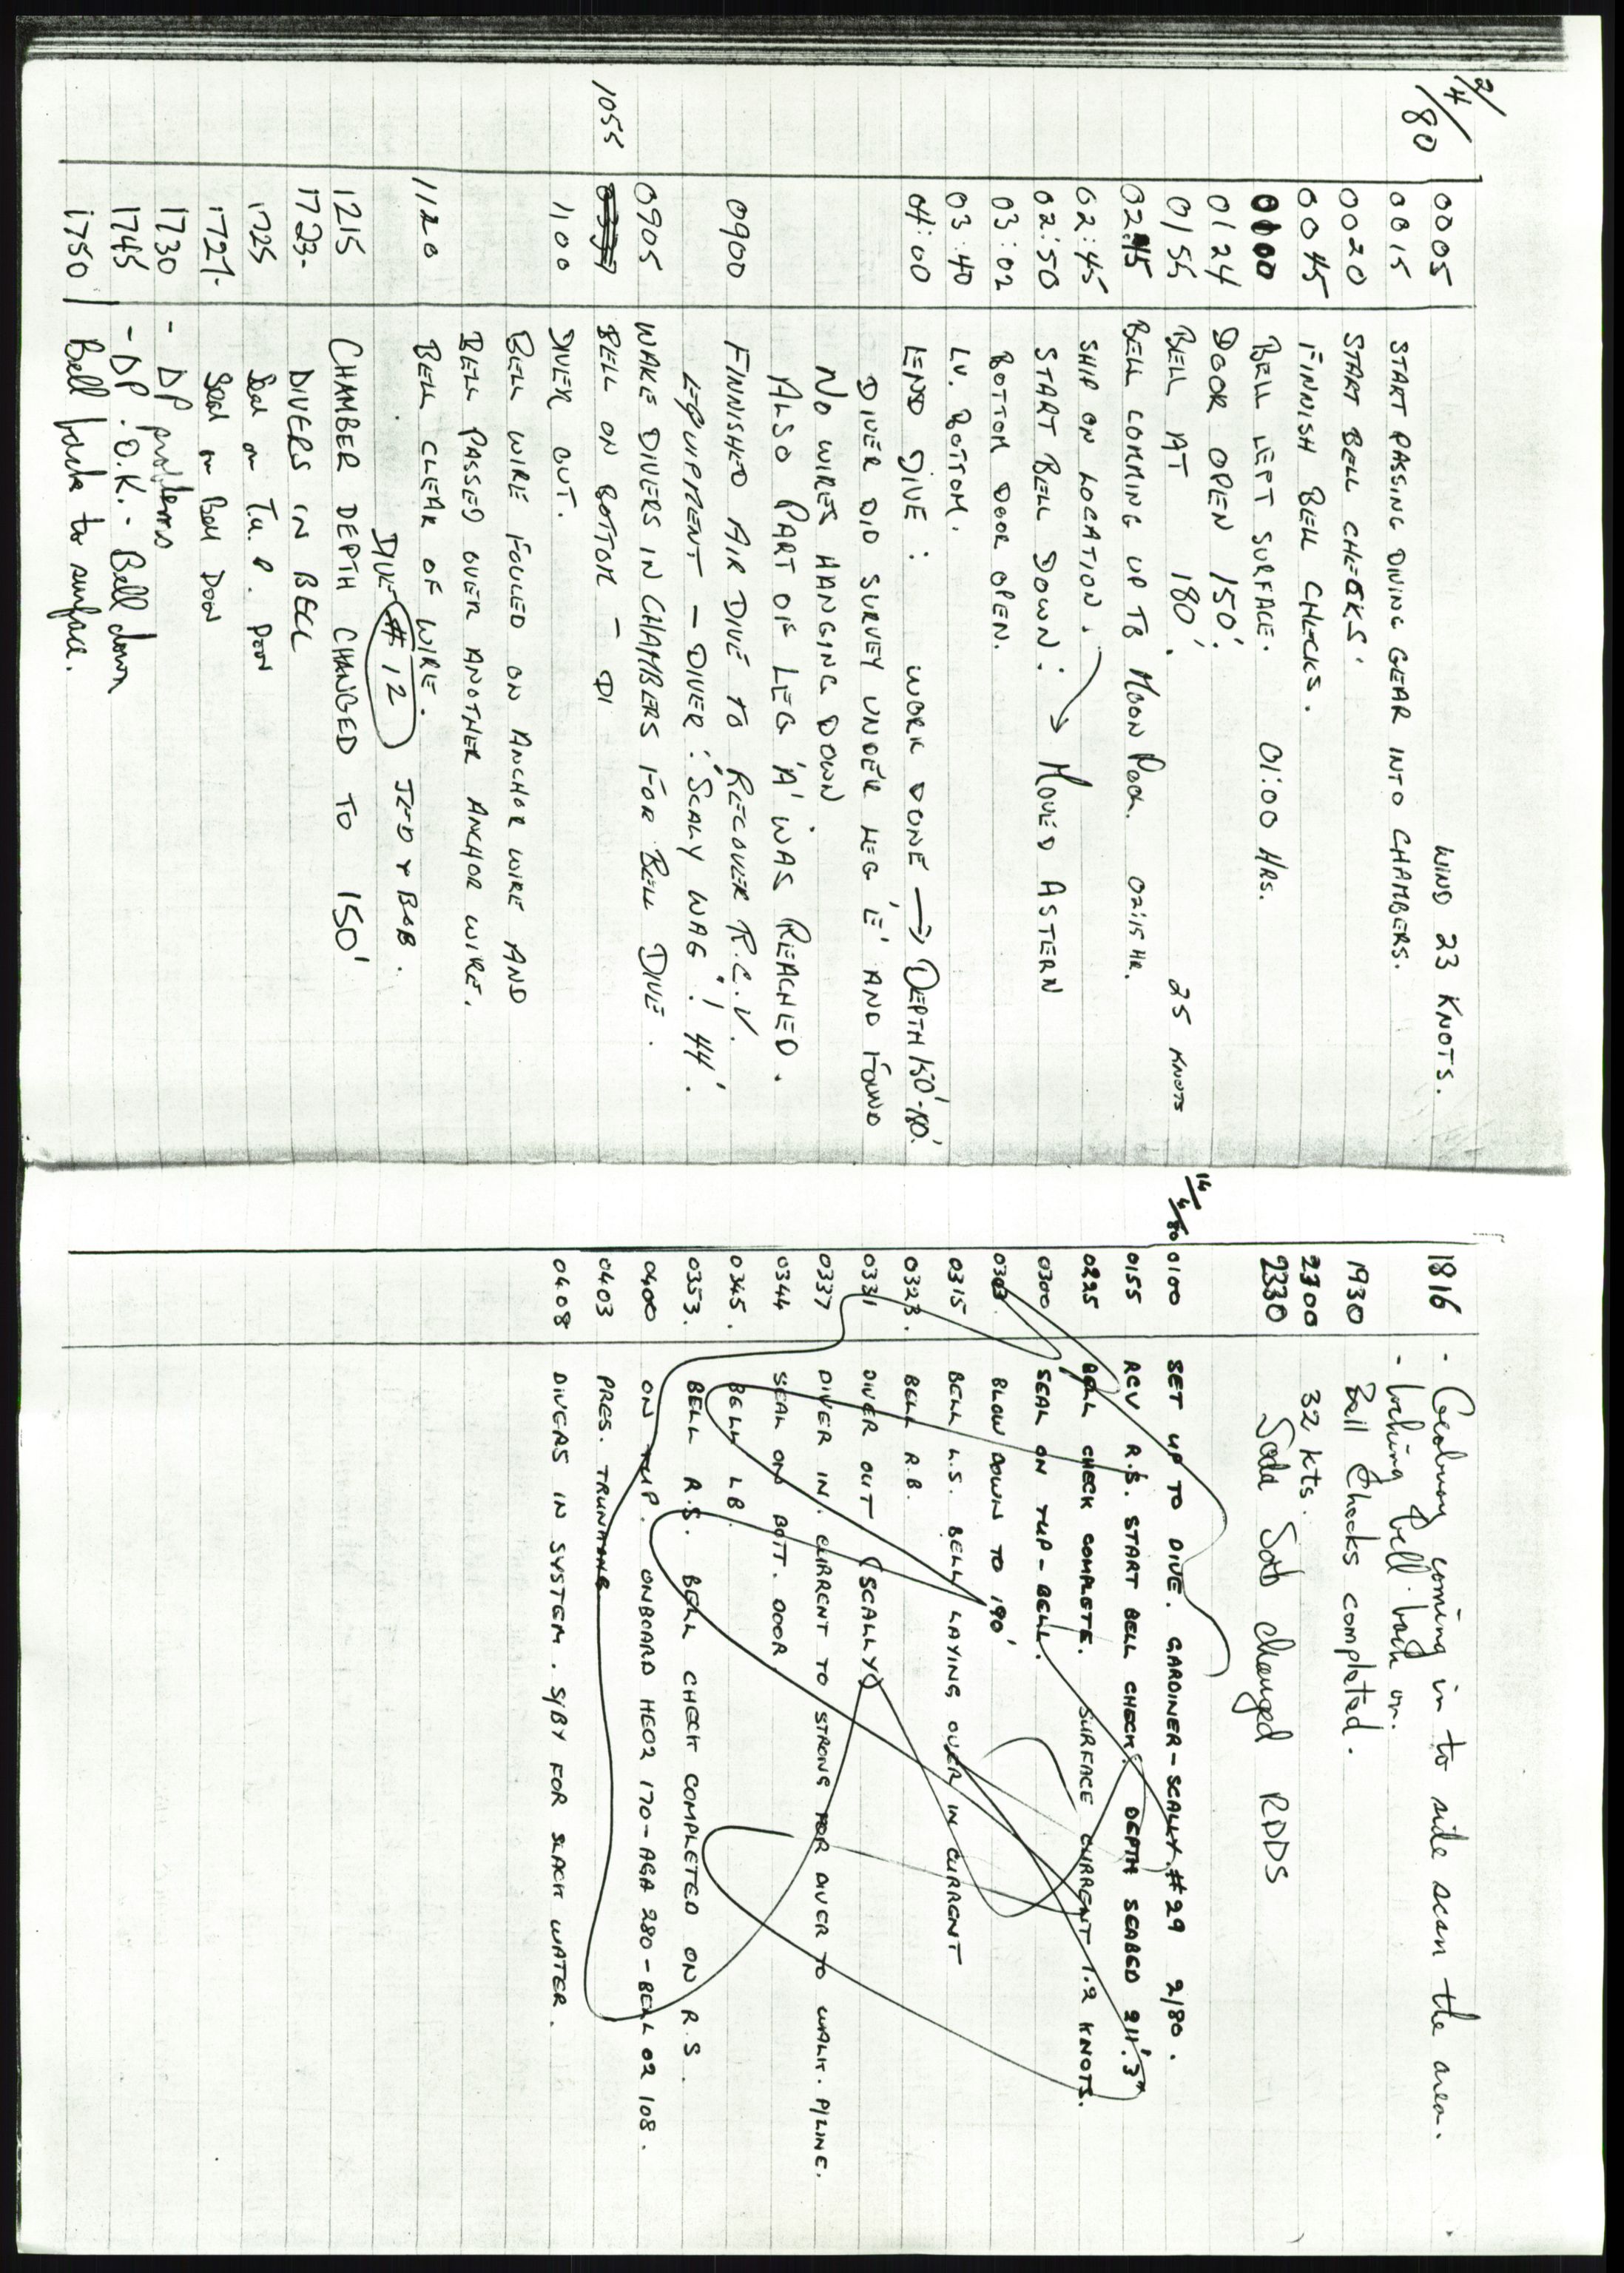 2/4/80
0005 WIND 23 KNOTS.
0015 START PASSING DIVING GEAR INTO CHAMBERS.
0020 START BELL CHECKS.
0045 FINNISH BELL CHECKS.
0100 BELL LEFT SURFACE. 01:00 HRS.
0124 DOOR OPEN 150'.
0155 BELL AT 180'. 25 KNOTS
02:15 BELL COMMING UP TO MOON POOL. 02:15 HR.
02:45 SHIP ON LOCATION. → MOVED ASTERN
02:50 START BELL DOWN.
03:02 BOTTOM DOOR OPEN.
03:40 LV. BOTTOM.
04:00 END DIVE: WORK DONE → DEPTH 150'-180'.
DIVER DID SURVEY UNDER LEG 'E' AND FOUND
NO WIRES HANGING DOWN.
ALSO PART OF LEG 'A' WAS REACHED.
0900 FINNISHED AIR DIVE TO RECOVER R.C.V.
EQUIPMENT - DIVER: 'SCALY WAG'! 44'.
0905 WAKE DIVERS IN CHAMBERS FOR BELL DIVE.
1055 BELL ON BOTTOM - DI
1100 DIVER OUT.
BELL WIRE FOULED ON ANCHOR WIRE AND
BELL PASSED OVER ANOTHER ANCHOR WIRE.
1120 BELL CLEAR OF WIRE.
DIVE # 12 JED & BOB.
1215 CHAMBER DEPTH CHANGED TO 150'
1723- DIVERS IN BELL
1725 Seal on T.u.P. Door
1727- Seal on Bell Door
1730 - DP problems
1745 - DP. O.K. - Bell down
1750 Bell back to surface.
1816 - coming in to side scan the area.
- locking bell back on.
1930 Bell Checks completed.
2300 32 kts.
2330 Soda Sorb changed RDDS
14/4/80 0100 SET UP TO DIVE. GARDINER-SCALLY. #29 2/80.
0155 RCV R.S. START BELL CHECK. DEPTH SEABED 211'.3"
0225 BELL CHECK COMPLETE. SURFACE CURRENT 1.2 KNOTS.
0300 SEAL ON TUP-BELL.
0303. BLOW DOWN TO 190'
0315 BELL L.S. BELL LAYING OVER IN CURRENT
0323. BELL R.B.
0331 DIVER OUT (SCALLY)
0337 DIVER IN. CURRENT TO STRONG FOR DIVER TO WALK. P/LINE.
0344 SEAL ON BOTT. DOOR
0345. BELL LB.
0353. BELL R.S. BELL CHECK COMPLETED ON R.S.
0400 ON TUP. ONBOARD HEO2 170-AGA 280-BELL O2 108.
0403 PRES. TRUNKING
0408 DIVERS IN SYSTEM. S/BY FOR SLACK WATER.